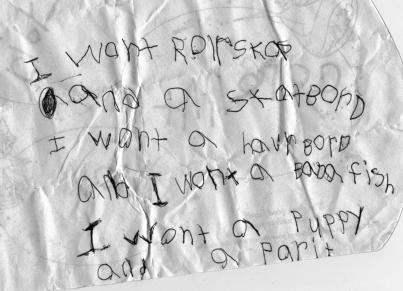 I want ROlrskat
and a skatBorD
I want a havrBorD
and I want a BaBa fish
I Want a PuPPy
and a Parit